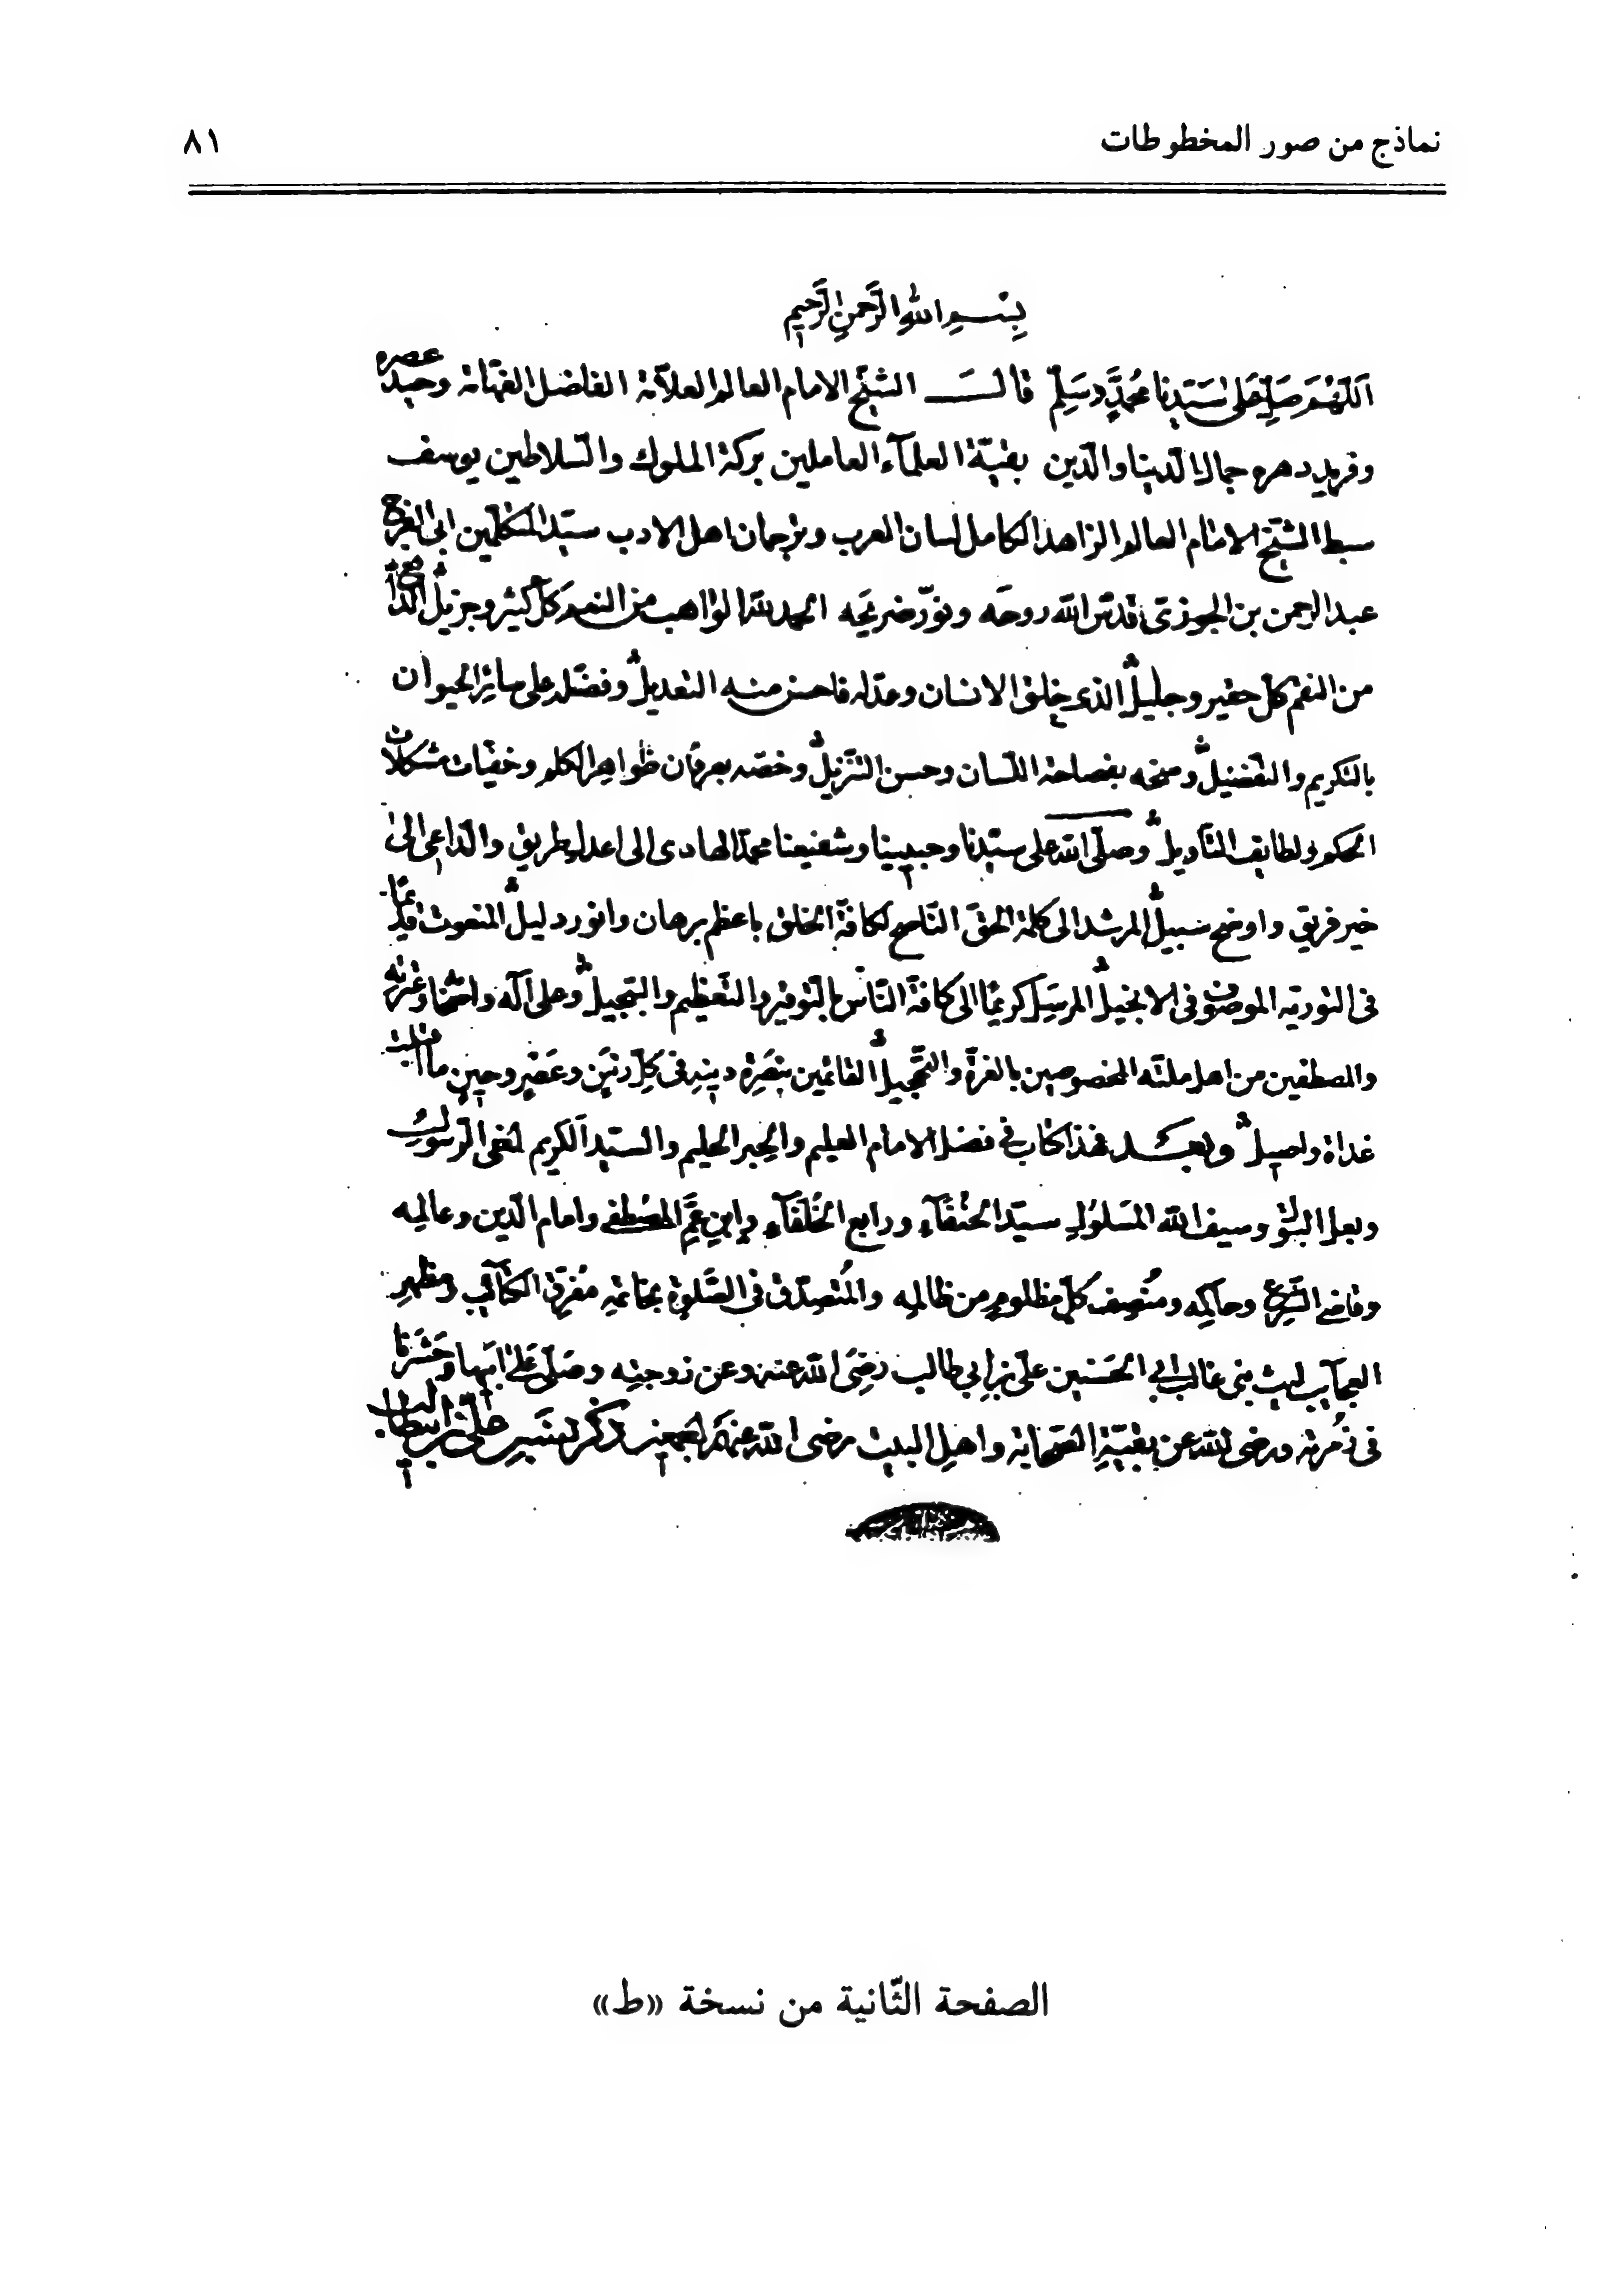 نماذج من صور المخطوطات
٨١
بِسْمِ اللهِ الرَّحمنِ الرَّحيمِ
اَللّهُمَ صَلِّ عَلى سَيّدِنا مُحَمَّدٍ وسَلِّم قالَ الشيخ الامام العالم العلامة الفاضل الفهامة وحيد عصره
وفريد دهره جمال الدنيا والدين بقيّة العلمآء العاملين بركة الملوك والسلاطين يوسف
سبط الشيخ الامام العالم الزاهد الكامل لسان العرب وترجمان اهل الادب سيّد المتكلمين ابى الفرج
عبد الرحمن بن الجوزى قدّس الله روحَه ونوّر ضريحَه الحمد لله الواهب من النعم كل كثير وجزيل الدافع
من النقم كل حقير وجليل الذى خلق الانسان وعدّله فاحسن منه التعديل وفضّله على سائر الحيوان
بالتكريم والتفضيل ومنحه بفصاحة اللسان وحسن التنزيل وخصّه بعرفان ظواهر الكلم وخفيّات مشكلات
الحكم ولطايف التأويل وصلّى الله على سيّدنا وحبيبنا وشفيعنا محمّد الهادى الى اعدل طريق والدّاعى الى
خير فريق واوضح سبيل المرشد الى كلمة الحق النّاصح لكافة الخلق باعظم برهان وانور دليل المنعوت قدمًا
فى التورية الموصوف فى الانجيل المرسَل كريمًا الى كافة النّاس بالتوقير والتعظيم والتبجيل وعلى آله واصحابه وعترته
والمصطفين من اهل ملته المخصوصين بالغرّة والتحجيل القائمين بنَصرة دينه فى كلّ زمَنٍ وعَصْرٍ وحينٍ ما تأنّفت
غداة واصيل وبعد فهذا كتاب فى فضل الامام العليم والحبر الحليم والسيّد الكريم اخى الرّسول
وبعل البتول وسيف الله المَسلولِ سيّد الحُنَفآءِ ورابع الخُلَفَآءِ وابنِ عَمِّ المصْطفى وامام الدّين وعالمِه
وقاضى الشرع وحاكِمه ومُنْصِف كلِّ مظلومٍ من ظالمِه والمُتصِدِّق فى الصَّلوة بخاتَمِه مُفَرّق الكتآئب ومظهرِ
العجآيب ليث بنى غالب ابى الحَسَنين علىّ بن ابى طالب رضى الله عنه وعن زوجيه وصَلّى على ابيها وحَشَرنا
فى زُمرته ورضى الله عن بقيّةِ الصّحابة واهل البيت رضى الله عنهم اجمعين ذكر نسب علىّ بن ابيطالب
الصفحة الثّانية من نسخة «ط»